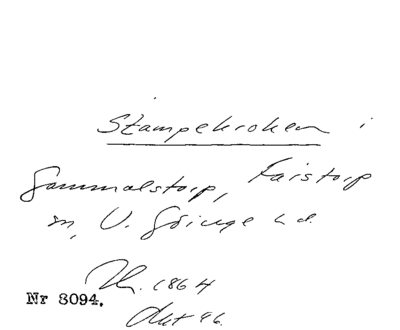 Stampekroken i
Gammalstorp, Fairstorp
sn, V. Göinge h.d.
Th. 1864
Nr 8094.
Okt 96.